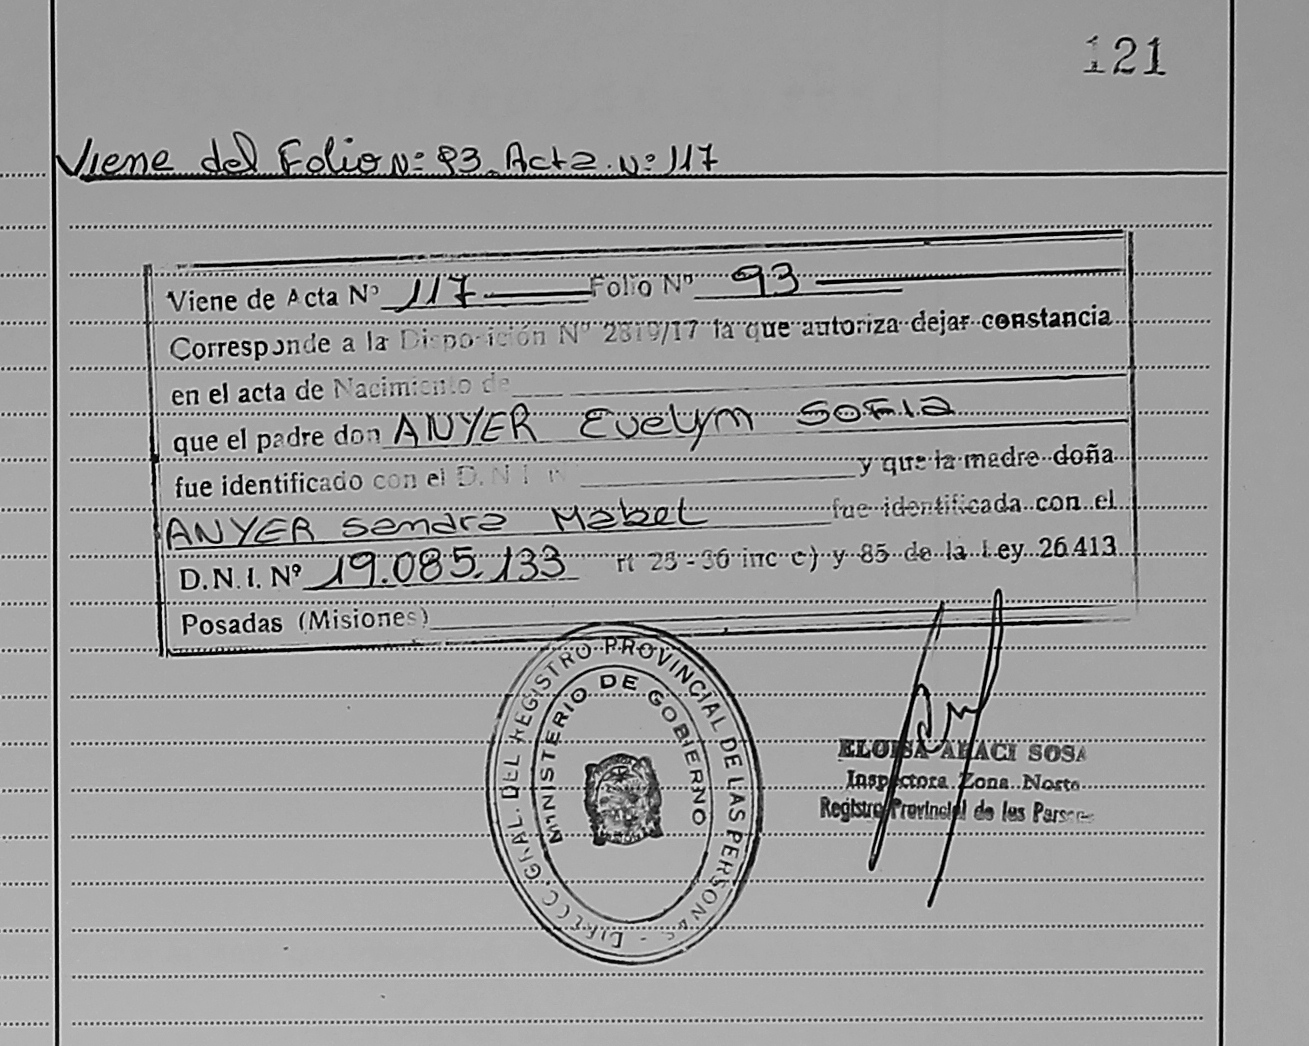 121
Viene del Folio Nº 93. Acta. Nº 117
Viene de Acta Nº 117 Folio Nº 93
Corresponde a la Disposición Nº 2819/17 la que autoriza dejar constancia
en el acta de Nacimiento de
que el padre don ANYER Evelyn SOFIA
fue identificado con el D.N.I. Nº y que la madre doña
ANYER Sandra Mabel fue identificada con el
D.N.I. Nº 19.085.133 rt 23-36 inc c) y 85 de la Ley 26413
Posadas (Misiones)
DIRECC. GRAL. DEL REGISTRO PROVINCIAL DE LAS PERSONAS -
MINISTERIO DE GOBIERNO
ELOISA ARACI SOSA
Inspectora Zona Norte
Registro Provincial de las Person